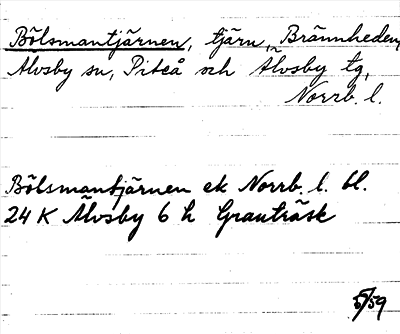 Bölsmantjärnen, tjärn, Brännheden,
Älvsby sn, Piteå och Älvsby tg,
Norrb. l.
Bölsmantjärnen ek Norrb. l. bl.
24 K Älvsby 6 h Granträsk
5/59